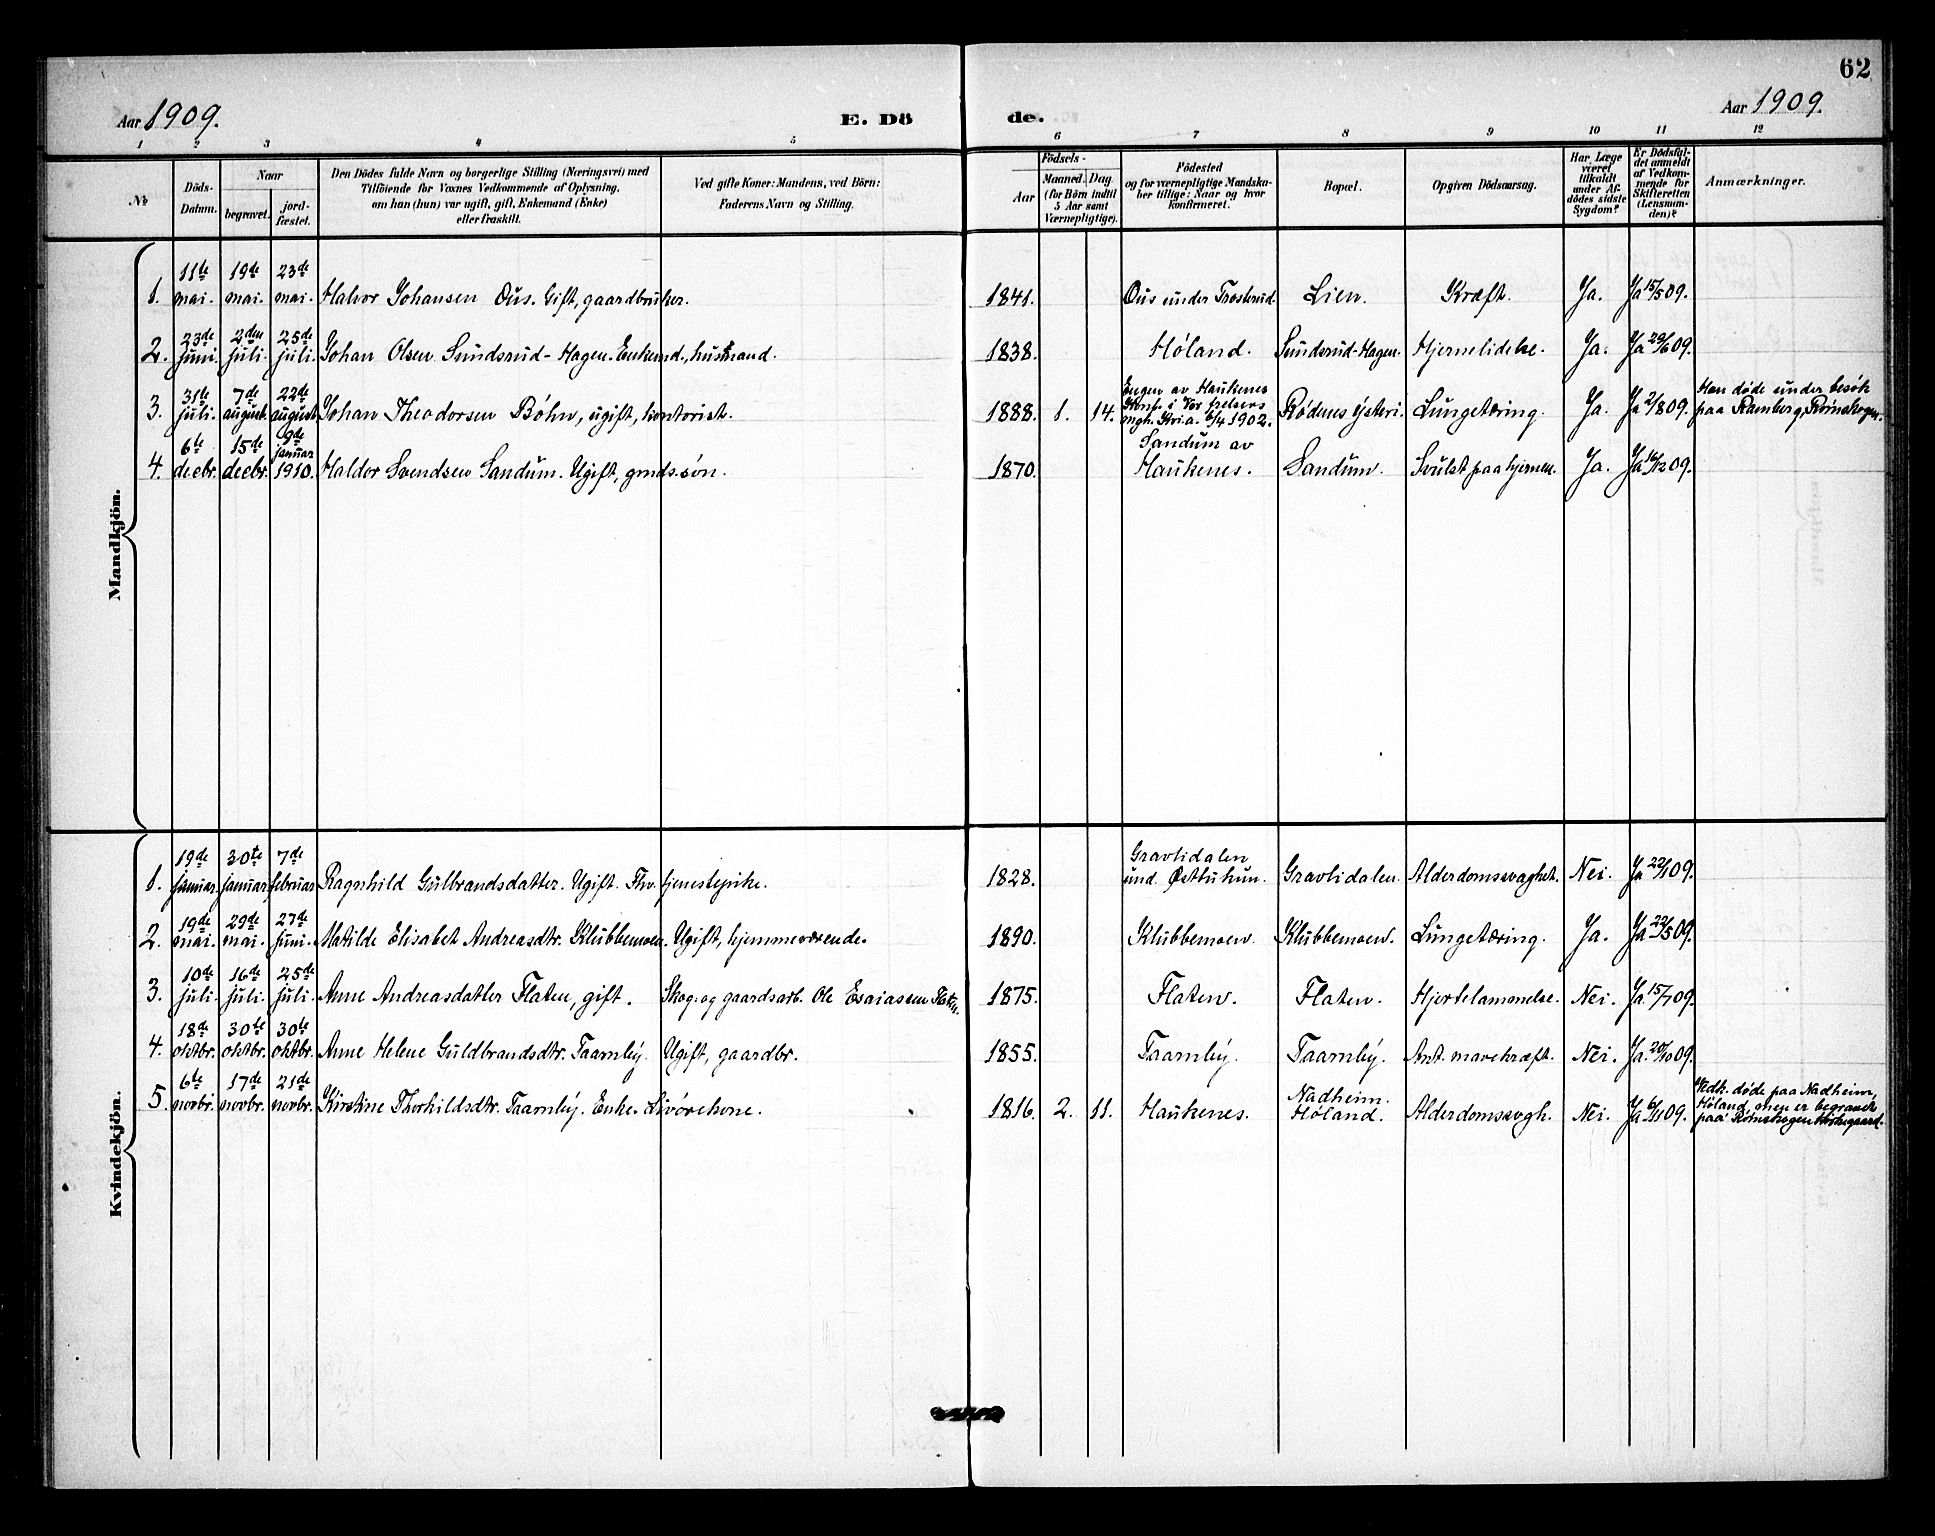 62
Aar 1909.
E. Dö
de.
Aar 1909.
1 2 3 4 5 6 7 8 9 10 11 12
No
Döds-
Datum.
Naar
begravet.
jord-
fæstet.
Den Dödes fulde Navn og borgerlige Stilling (Næringsvei) med
Tilföiende for Voxnes Vedkommende af Oplysning,
om han (hun) var ugift, gift, Enkemand (Enke)
eller fraskilt.
Ved gifte Koner: Mandens, ved Börn:
Faderens Navn og Stilling.
Födsels-
Aar
Maaned.
Dag
(for Börn indtil
5 Aar samt
Værnepligtige).
Födested
og for værnepligtige Mandska-
ber tillige: Naar og hvor
konfirmeret.
Bopæl.
Opgiven Dödsaarsag.
Har Læge
været
tilkaldt
under Af-
dödes sidste
Sygdom?
Er Dödsfal-
det anmeldt
af Vedkom-
mende for
Skifteretten
(Lensman-
den)?
Anmærkninger.
Mandkjön.
1. 11te mai. 19de mai. 23de mai. Halvor Johansen Ous. Gift, gaardbruker. 1841. Ous under Trosterud. Lien. Kræft. Ja. Ja 15/5 09.
2. 23de juni. 2den juli. 25de juli. Johan Olsen Sundsrud-Hagen. Enkemd., husmand. 1838. Høland. Sundsrud-Hagen. Hjernelidelse. Ja. Ja 29/6 09.
3. 31te juli. 7de august. 22de august. Johan Theodorsen Böhn, ugift, kontorist. 1888. 1. 14. Engen av Haukenes
Konf. i Vor Frelsers
mgh. Kria. 6/4 1902. Rödenes ysteri. Lungetæring. Ja. Ja 2/8 09. Han døde under besøk
paa Ramberg, Rømskogen.
4. 6te decbr. 15de decbr. 9de januar 1910. Haldor Svendsen Sandum. Ugift, grmds.søn. 1870. Sandum av
Haukenes. Sandum. Svulst paa hjernen. Ja. Ja 16/12 09.
Kvindekjön.
1. 19de januar. 30te januar. 7de februar. Ragnhild Gulbrandsdatter. Ugift. Fhv. tjenestepike. 1828. Gravlidalen
und. Østkukun. Gravlidalen. Alderdomssvaghet. Nei. Ja 22/1 09.
2. 19de mai. 29de mai. 27de juni. Matilde Elisabet Andreasdtr. Klubbemoen. Ugift, hjemmeværende. 1890. Klubbemoen. Klubbemoen. Lungetæring. Ja. Ja 22/5 09.
3. 10de juli. 16de juli. 25de juli. Anne Andreasdatter Flaten, gift. Skog- og gaardsarb. Ole Esaiassen Flaten. 1875. Flaten. Flaten. Hjertelammelse. Nei. Ja 15/7 09.
4. 18de oktbr. 30te oktbr. 30te oktbr. Anne Helene Guldbrandsdtr. Taarnby. Ugift, gaardbr. 1855. Taarnby. Taarnby. Ant. mavekræft. Nei. Ja. 20/10 09.
5. 6te novbr. 17de novbr. 21de novbr. Kirstine Thorkildsdtr. Taarnby. Enke. Livörekone. 1816. 2. 11. Haukenes. Nadheim.
Høland. Alderdomssvgh. Nei. Ja 6/11 09. Vedk. døde paa Nadheim,
Høland, men er begravet
paa Rømskogen kirkegaard.